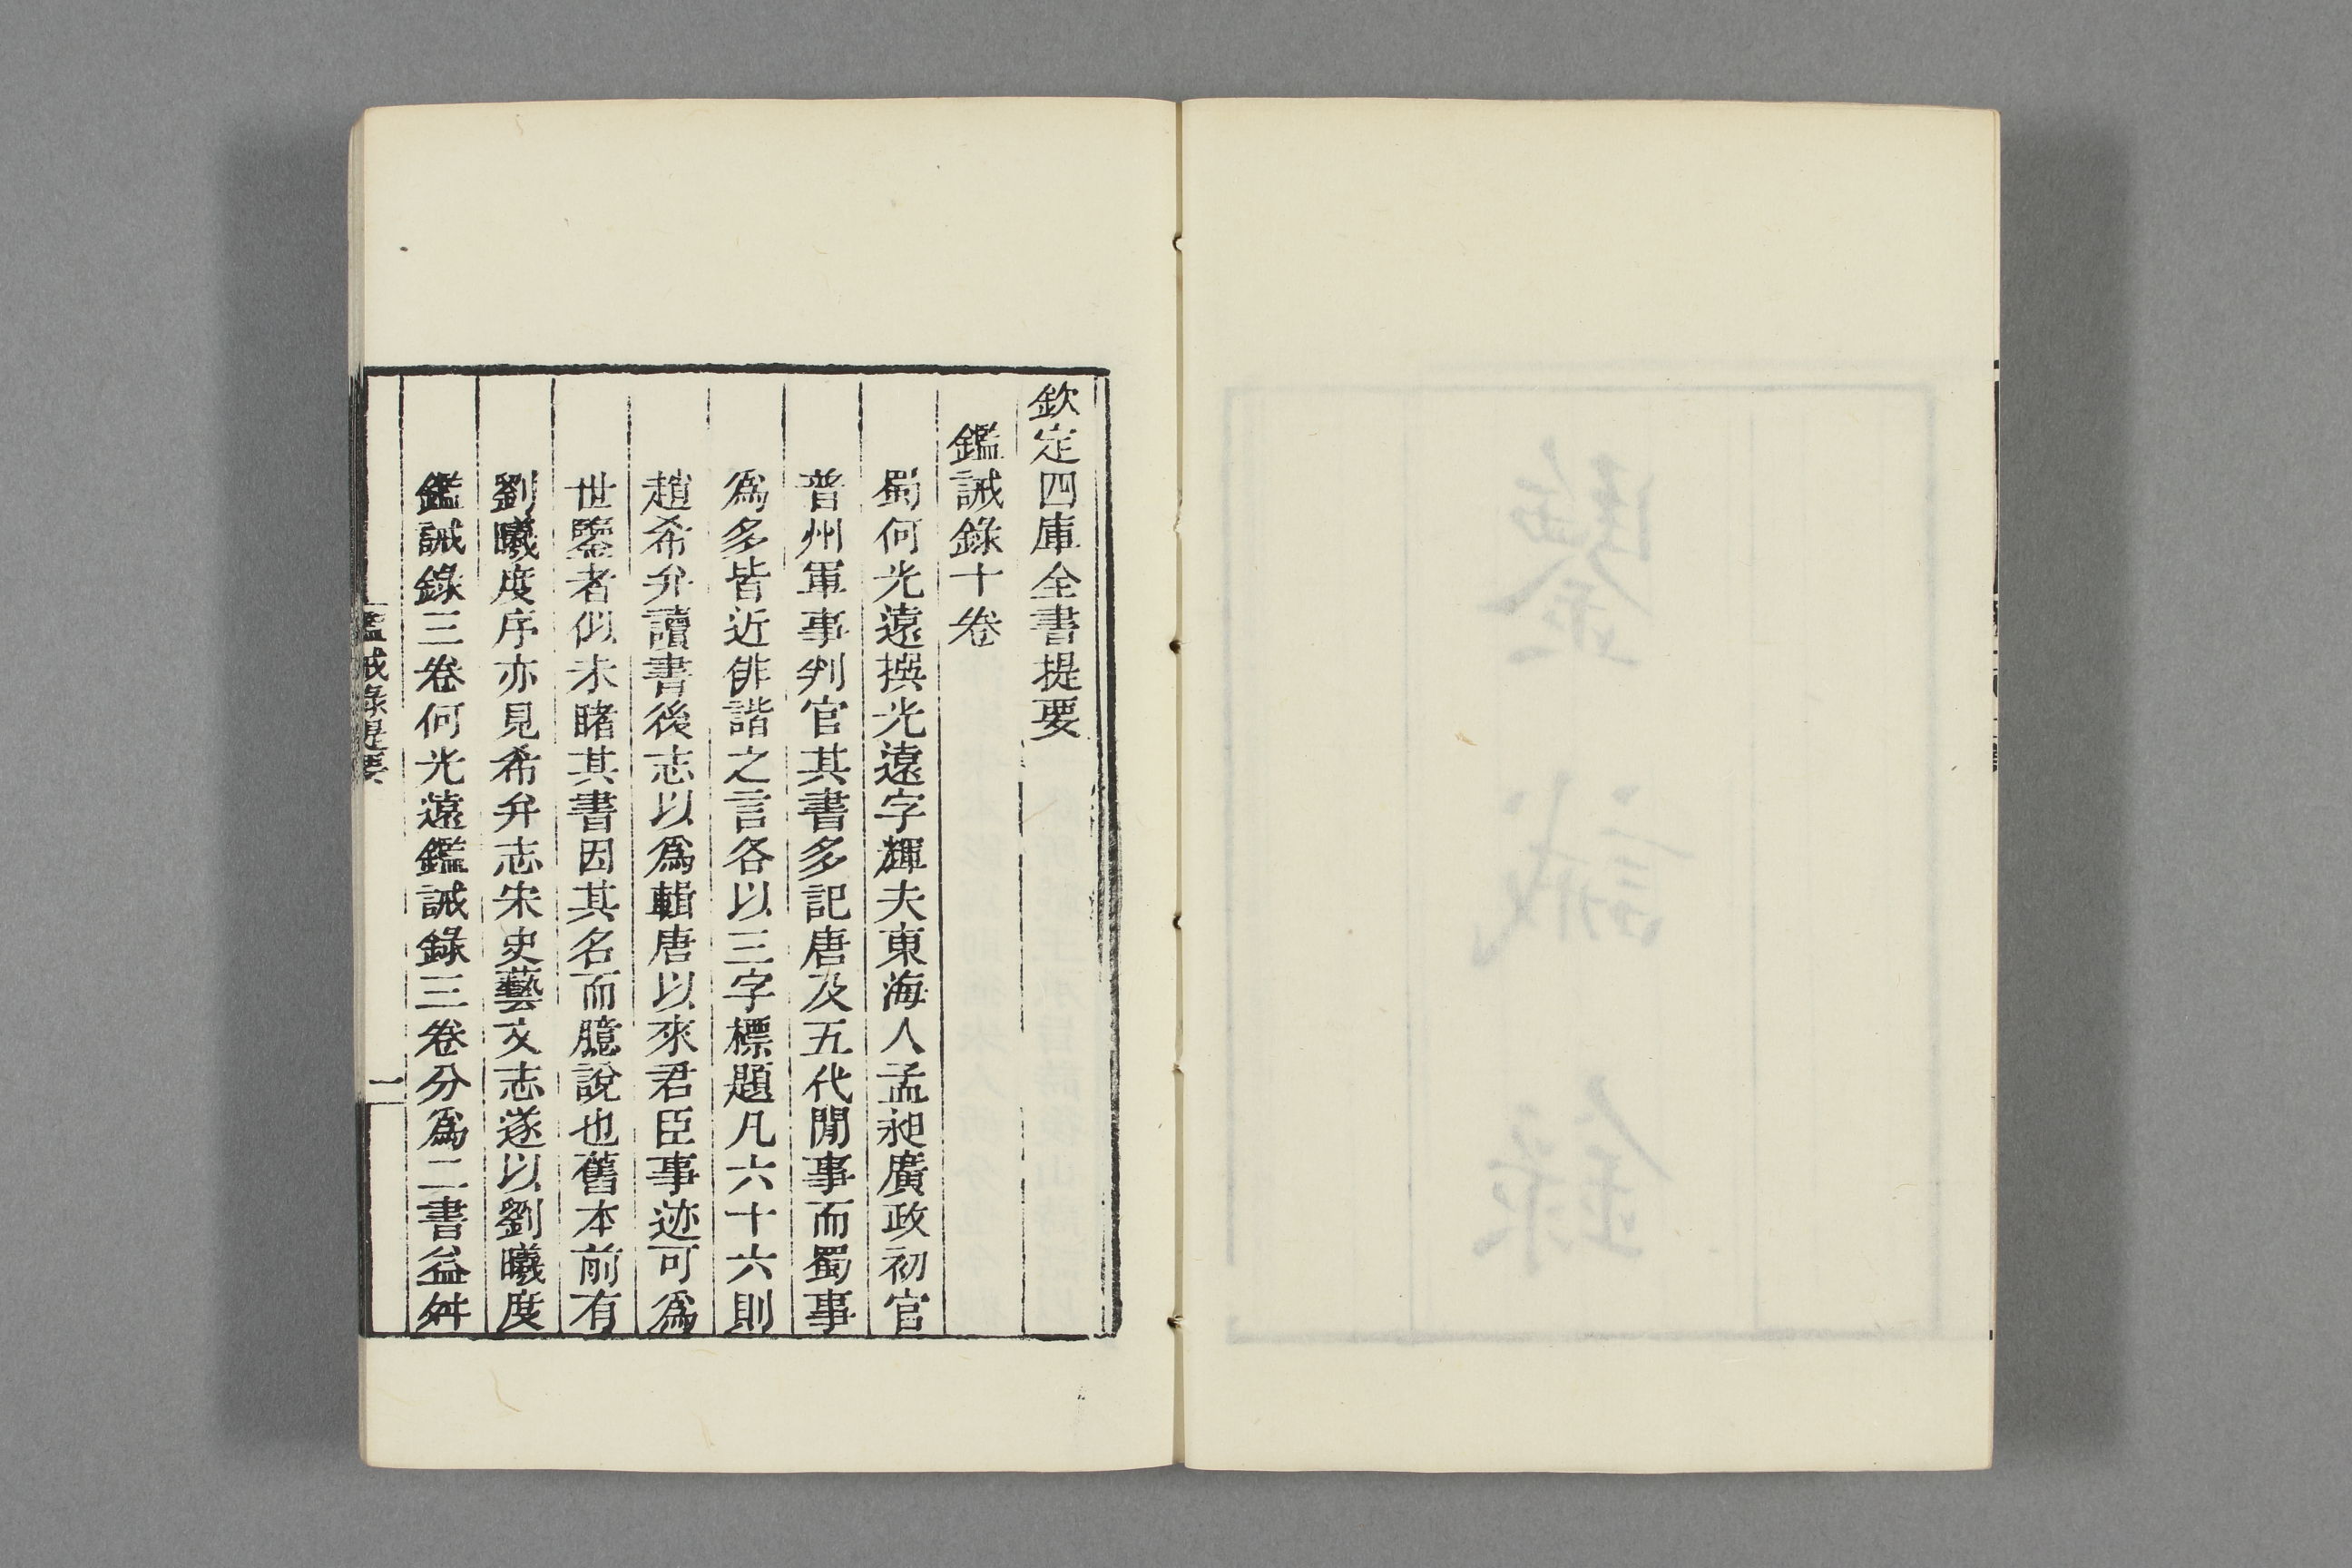 欽定四庫全書提要
鑑誡錄十卷
蜀何光遠撰光遠字輝夫東海人孟昶廣政初官
普州軍事判官其書多記唐及五代閒事而蜀事
爲多皆近俳諧之言各以三字標題凡六十六則
趙希弁讀書後志以爲輯唐以來君臣事迹可爲
世鑒者似未睹其書因其名而臆說也舊本前有
劉曦度序亦見希弁志宋史藝文志遂以劉曦度
鑑誡錄三卷何光遠鑑誡錄三卷分爲二書益舛
鑑誡錄提要
一